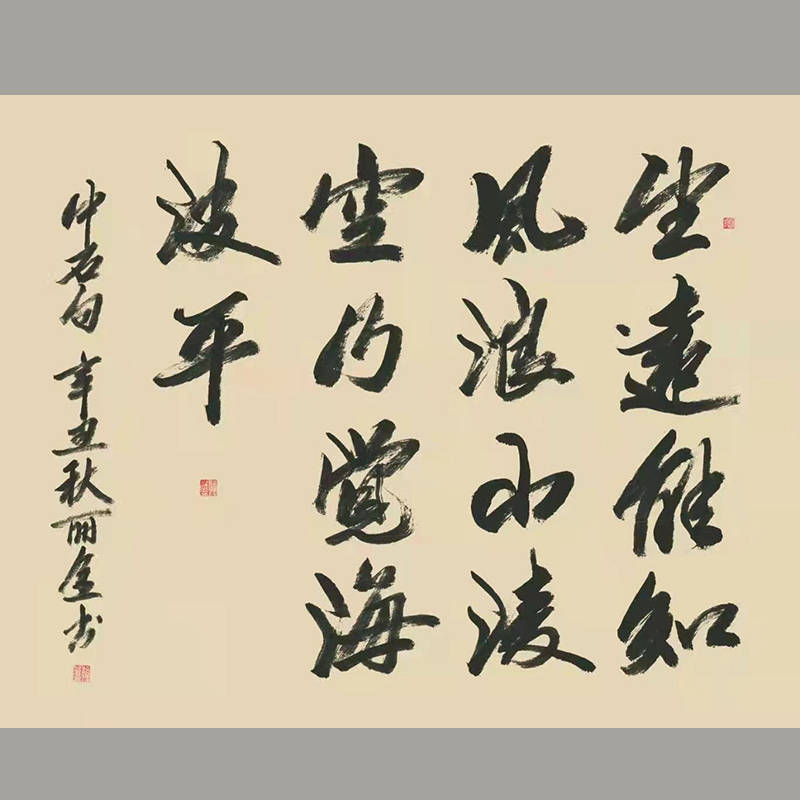 望遠能知
風浪小凌
空乃覺海
波平
中石句 辛丑秋丽金书